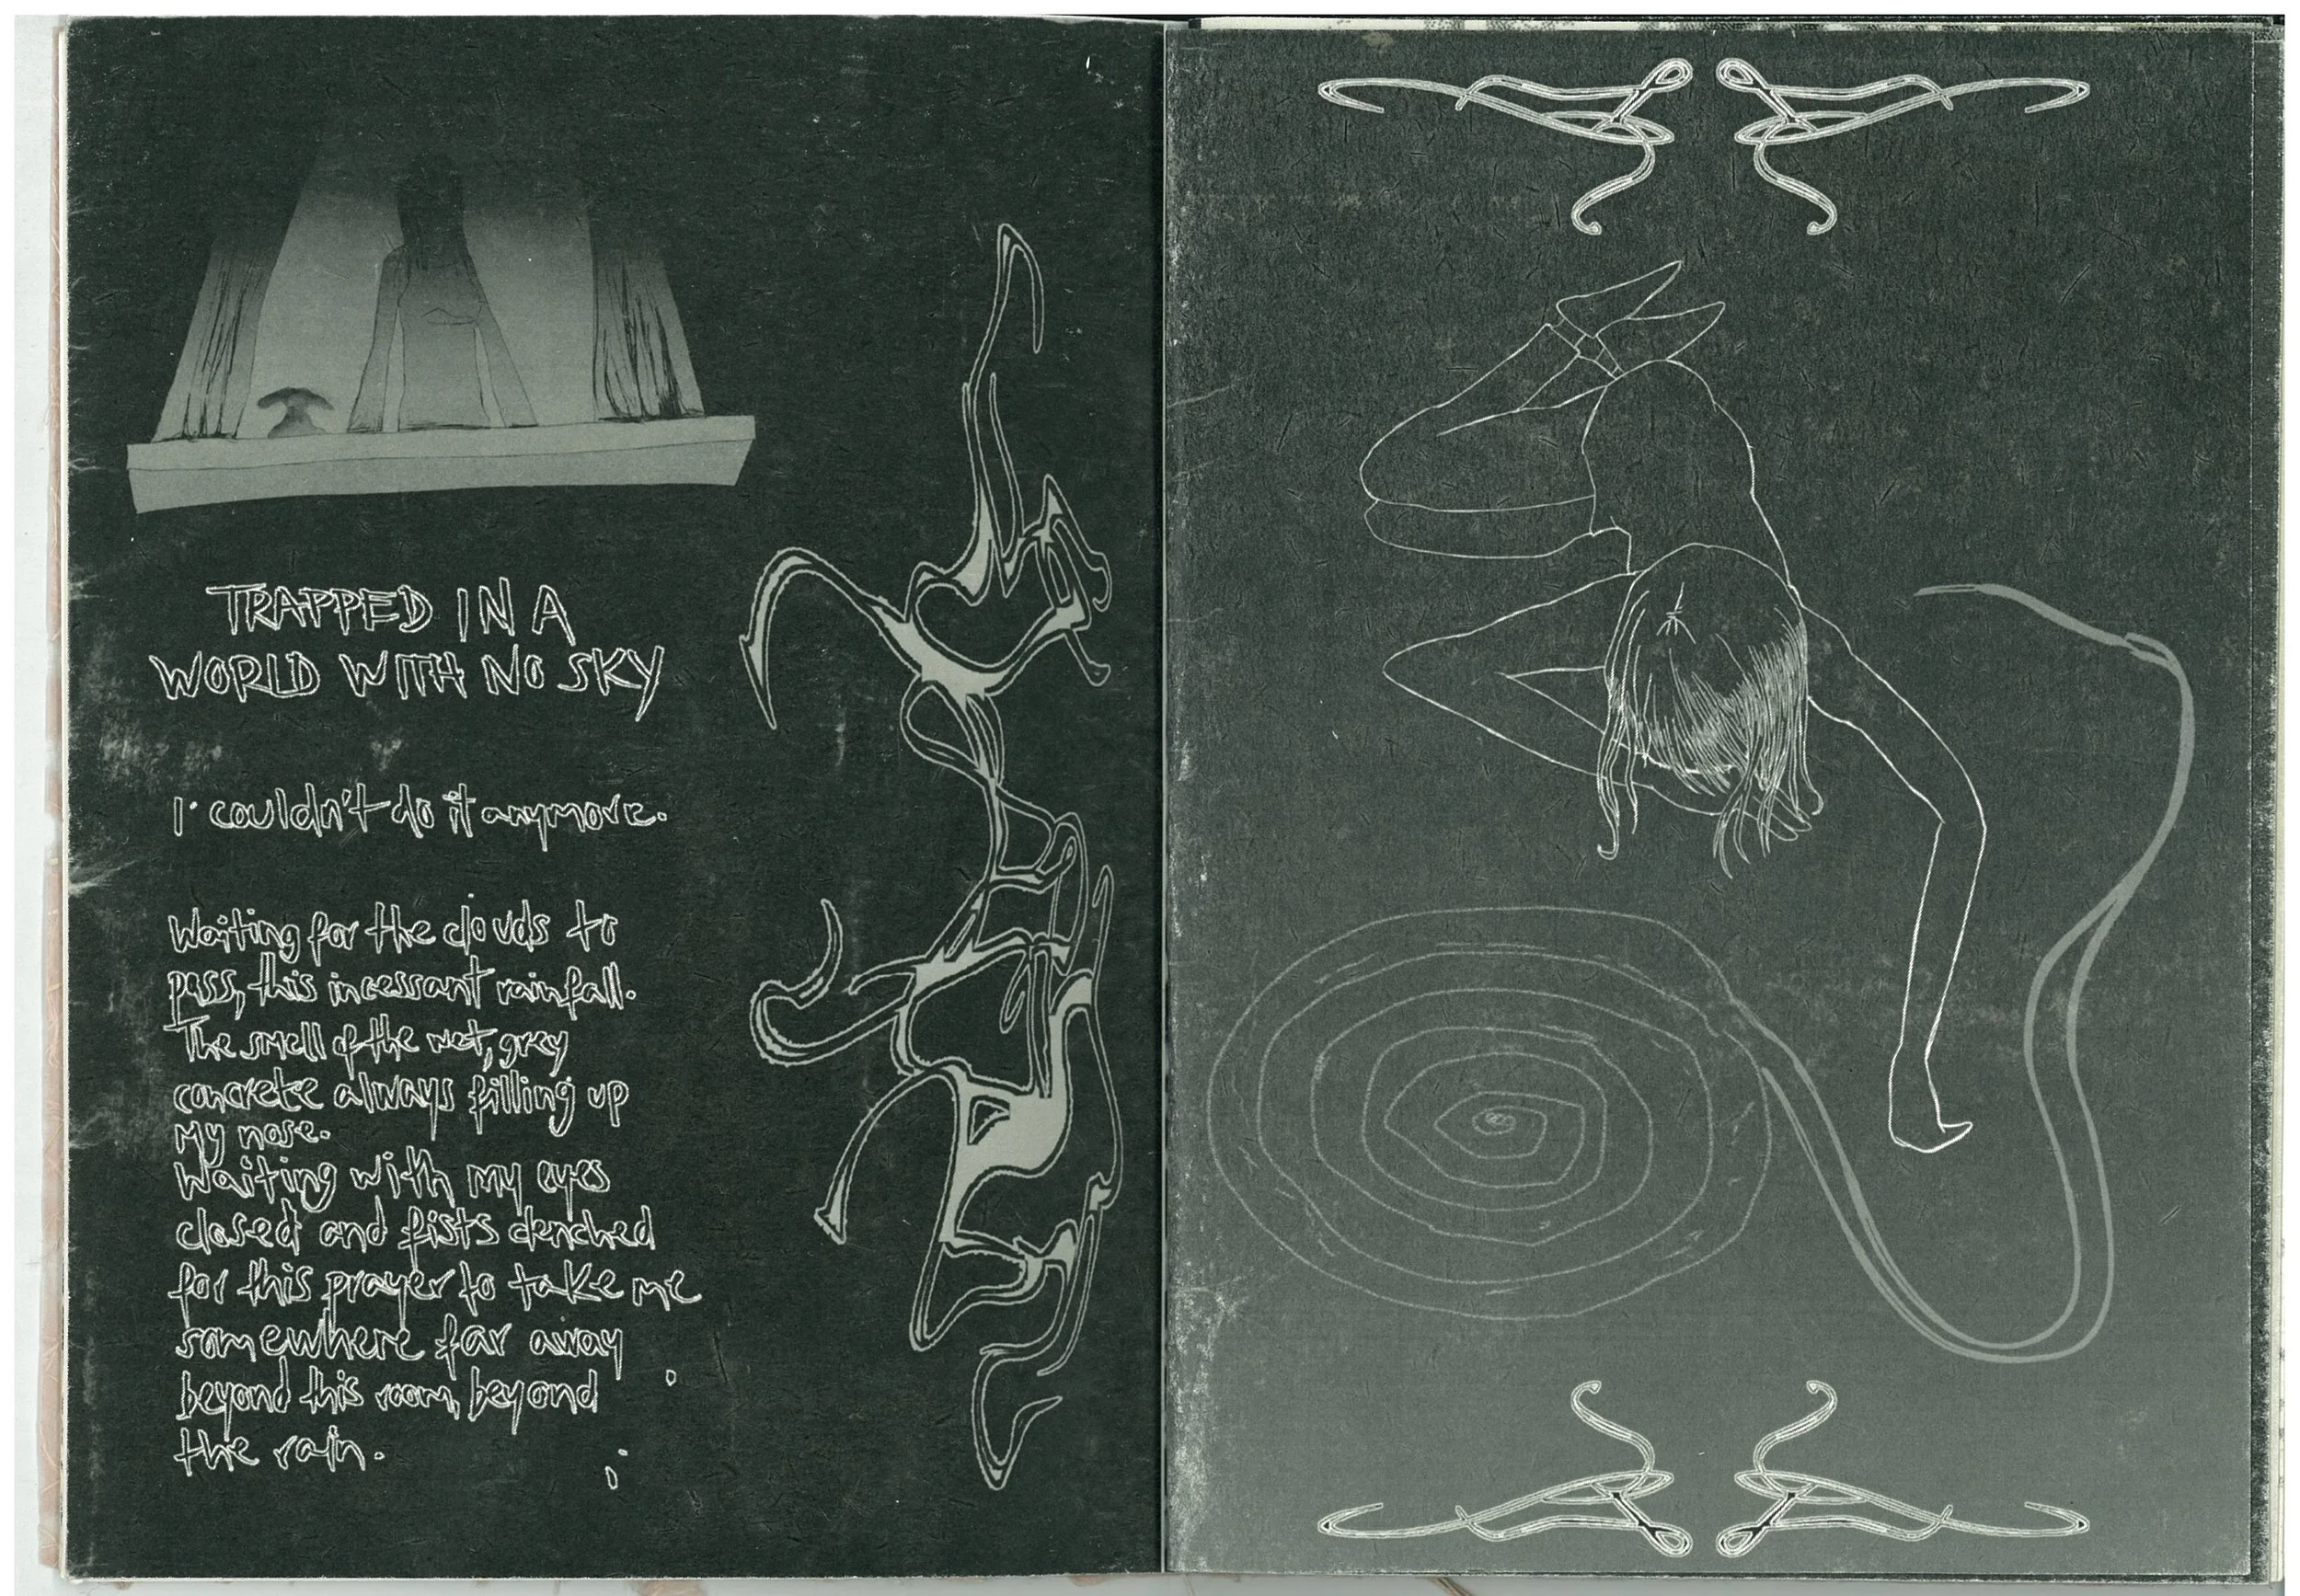 TRAPPED IN A
WORLD WITH NO SKY
I couldn't do it anymore.
Waiting for the clouds to
pass, this incessant rainfall.
The smell of the wet, grey
concrete always filling up
my nose.
Waiting with my eyes
closed and fists clenched
for this prayer to take me
somewhere far away
beyond this room, beyond
the rain.